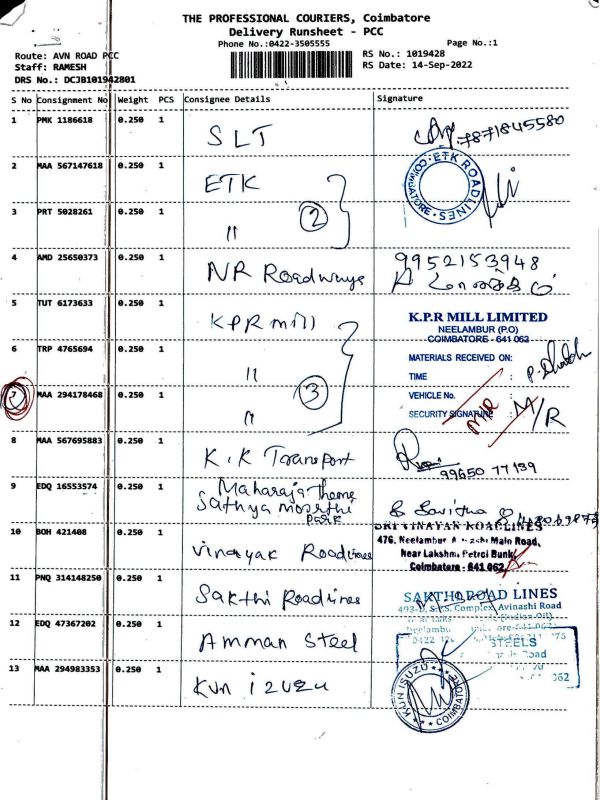 THE PROFESSIONAL COURIERS, Coimbatore
Delivery Runsheet - PCC
Phone No.:0422-3505555
Page No.:1
Route: AVN ROAD PCC
Staff: RAMESH
DRS No.: DCJB101942801
RS No.: 1019428
RS Date: 14-Sep-2022
S No Consignment No Weight PCS Consignee Details Signature
1 PMK 1186618 0.250 1 SLT 7871845580
2 MAA 567147618 0.250 1 ETK
ETK ROADLINES COIMBATORE
3 PRT 5028261 0.250 1 " 2
4 AMD 25650373 0.250 1 NR Roadways 9952153948
5 TUT 6173633 0.250 1 KPR mill
K.P.R MILL LIMITED
NEELAMBUR (P.O)
COIMBATORE - 641 062
6 TRP 4765694 0.250 1 "
MATERIALS RECEIVED ON:
TIME :
7 MAA 294178468 0.250 1 " 3
VEHICLE No. :
SECURITY SIGNATURE : M/R
M/R
8 MAA 567695883 0.250 1 K.K Transport 99650 77139
9 EDQ 16553574 0.250 1 Maharaja Theme
Sathya Moorthi
Park
10 BOH 421408 0.250 1 Vinayak Roadlines
SRI VINAYAK ROADLINES
476, Neelambur Main Road,
Near Lakshmi Petrol Bunk,
Coimbatore - 641 062
11 PNQ 314148250 0.250 1 Sakthi Roadlines
SAKTHI ROAD LINES
493-B, S.K.S. Complex, Avinashi Road
12 EDQ 47367202 0.250 1 Amman Steel
STEELS
Road
062
13 MAA 294983353 0.250 1 Kun izuzu
KUN ISUZU COIMBATORE